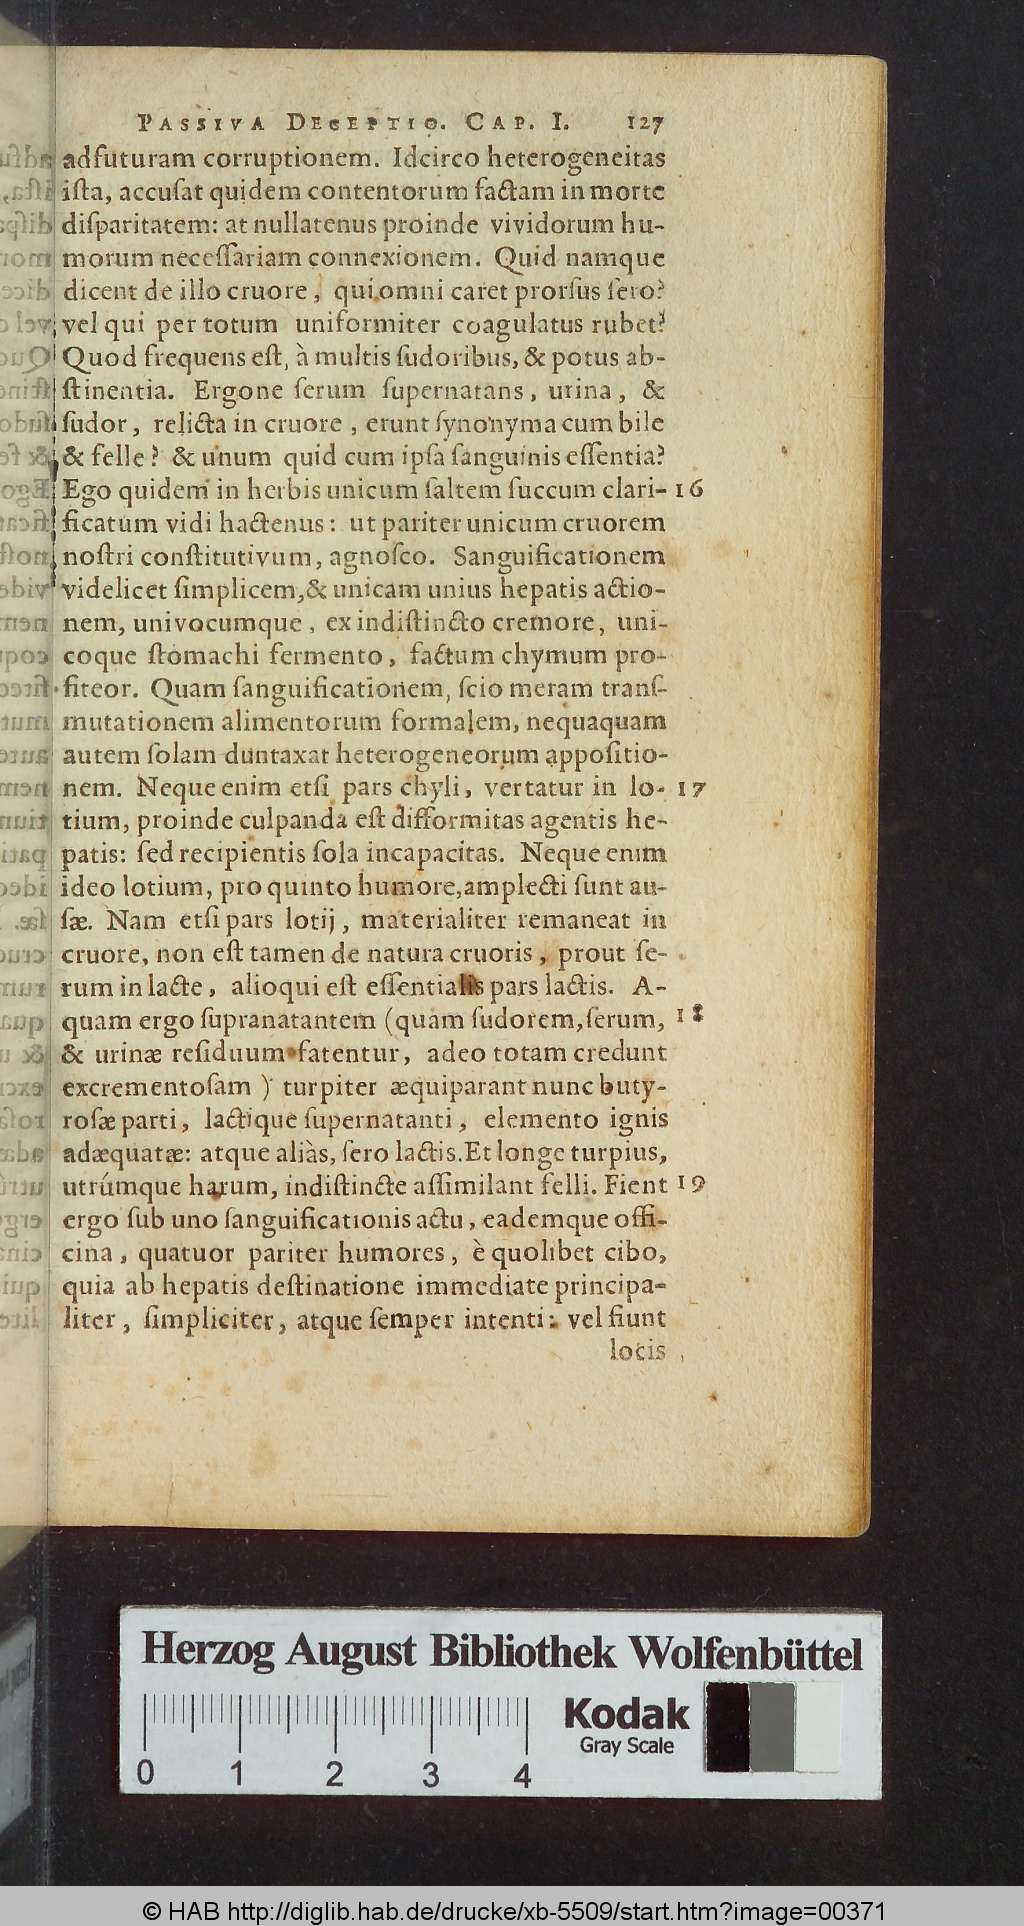 PASSIVA DECEPTIO. CAP. I. 127
adfuturam corruptionem. Idcirco heterogeneitas
iſta, accuſat quidem contentorum factam in morte
diſparitatem: at nullatenus proinde vividorum hu-
morum neceſſariam connexionem. Quid namque
dicent de illo cruore, qui omni caret prorſus ſero?
vel qui per totum uniformiter coagulatus rubet?
Quod frequens eſt, à multis ſudoribus, & potus ab-
ſtinentia. Ergone ſerum ſupernatans, urina, &
ſudor, relicta in cruore, erunt ſynonyma cum bile
& felle? & unum quid cum ipſa ſanguinis eſſentia?
Ego quidem in herbis unicum ſaltem ſuccum clari- 16
ficatum vidi hactenus: ut pariter unicum cruorem
noſtri conſtitutivum, agnoſco. Sanguificationem
videlicet ſimplicem, & unicam unius hepatis actio-
nem, univocumque, ex indiſtincto cremore, uni-
coque ſtomachi fermento, factum chymum pro-
fiteor. Quam ſanguificationem, ſcio meram tranſ-
mutationem alimentorum formalem, nequaquam
autem ſolam duntaxat heterogeneorum appoſitio-
nem. Neque enim etſi pars chyli, vertatur in lo- 17
tium, proinde culpanda eſt difformitas agentis he-
patis: ſed recipientis ſola incapacitas. Neque enim
ideo lotium, pro quinto humore, amplecti ſunt au-
ſæ. Nam etſi pars lotij, materialiter remaneat in
cruore, non eſt tamen de natura cruoris, prout ſe-
rum in lacte, alioqui eſt eſſentialis pars lactis. A-
quam ergo ſupranatantem (quam ſudorem, ſerum, 18
& urinæ reſiduum fatentur, adeo totam credunt
excrementoſam) turpiter æquiparant nunc buty-
roſæ parti, lactique ſupernatanti, elemento ignis
adæquatæ: atque aliàs, ſero lactis. Et longe turpius,
utrúmque harum, indiſtincte aſſimilant felli. Fient 19
ergo ſub uno ſanguificationis actu, eademque offi-
cina, quatuor pariter humores, è quolibet cibo,
quia ab hepatis deſtinatione immediate principa-
liter, ſimpliciter, atque ſemper intenti: vel fiunt
locis
Herzog August Bibliothek Wolfenbüttel
Kodak
Gray Scale
0 1 2 3 4
© HAB http://diglib.hab.de/drucke/xb-5509/start.htm?image=00371